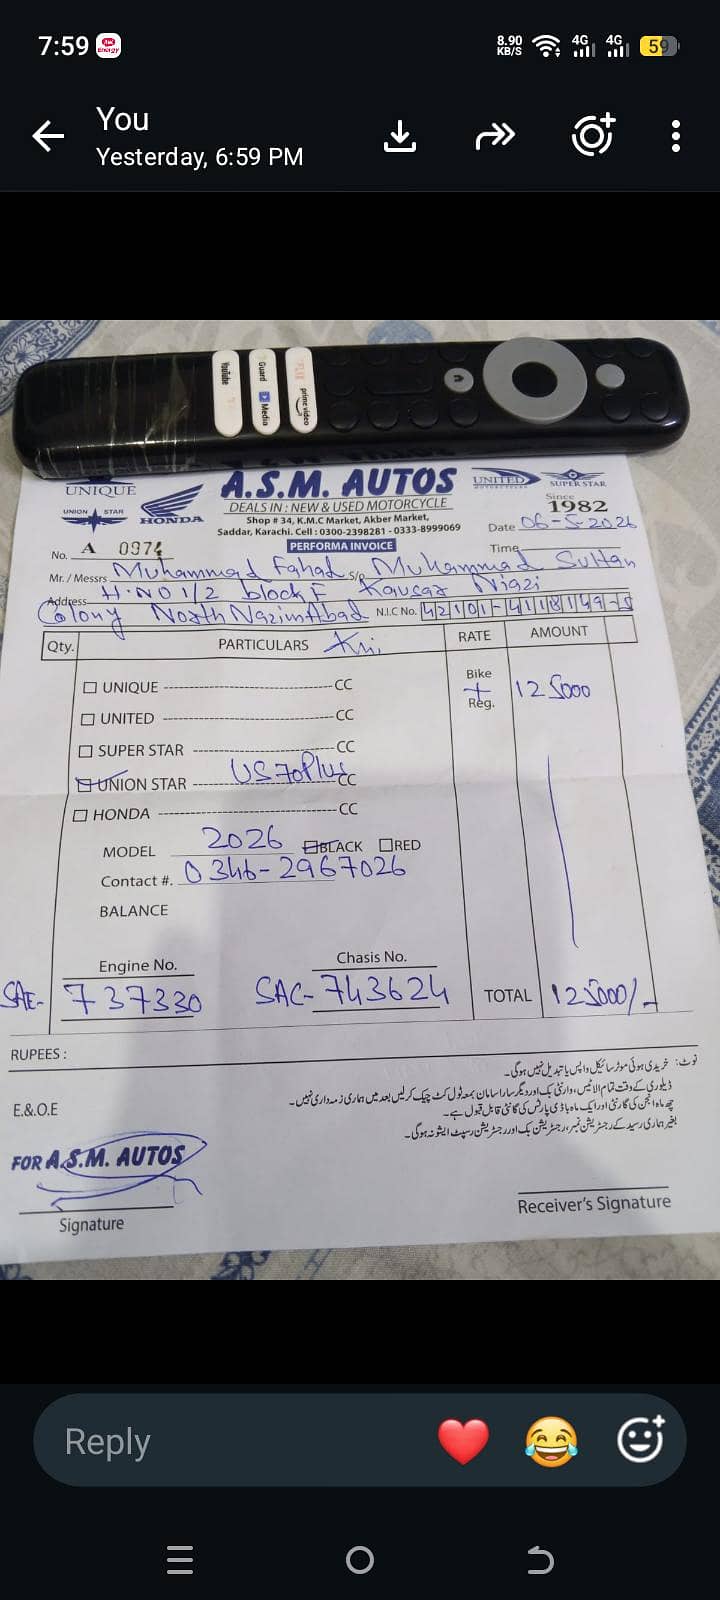 7:59
8.90 KB/S 4G 4G 59
You
Yesterday, 6:59 PM
YouTube Guard Media prime video
UNIQUE A.S.M. AUTOS UNITED SUPER STAR
UNION STAR HONDA DEALS IN : NEW & USED MOTORCYCLE Since 1982
Shop # 34, K.M.C Market, Akber Market,
Saddar, Karachi. Cell : 0300-2398281 - 0333-8999069 Date 06-5-2026
No. A 0974 PERFORMA INVOICE Time
Mr. / Messrs Muhammad Fahad S/o Muhammad Sultan
Address H.NO 1/2 block F Kausar Niazi
Colony North NazimAbad N.I.C No. 42101-4118149-5
Qty. PARTICULARS Khi RATE AMOUNT
UNIQUE CC Bike + Reg. 125000
UNITED CC
SUPER STAR CC
UNION STAR US70Plus CC
HONDA CC
MODEL 2026 BLACK RED
Contact #. 0346-2967026
BALANCE
Engine No. Chasis No.
SAE- 737330 SAC-743624 TOTAL 125000/-
RUPEES :
نوٹ: خریدی ہوئی موٹر سائیکل واپس یا تبدیل نہیں ہوگی۔
ڈیلوری کے وقت تمام لائٹیں، وارنٹی بک اور دیگر سارا سامان بمعہ ٹول کٹ چیک کرلیں بعد میں ہماری ذمہ داری نہیں۔
چھ ماہ انجن کی گارنٹی اور ایک ماہ باڈی پارٹس کی گارنٹی قابل قبول ہے۔
بغیر ہماری رسید کے رجسٹریشن نمبر، رجسٹریشن بک اور رجسٹریشن رسپٹ ایشو نہ ہوگی۔
E.&O.E
FOR A.S.M. AUTOS
Signature
Receiver's Signature
Reply